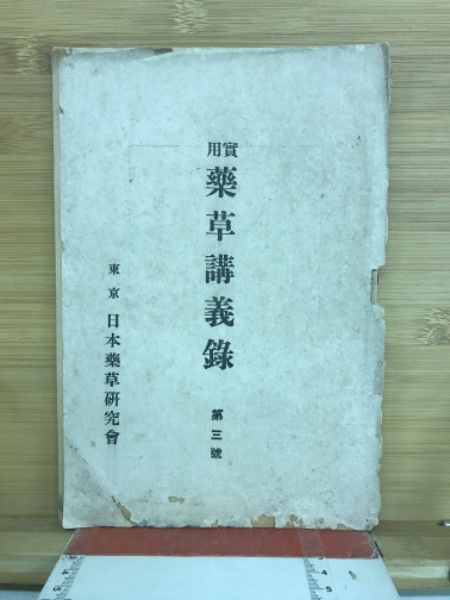 實用
藥草講義錄
第三號
東京
日本藥草研究會